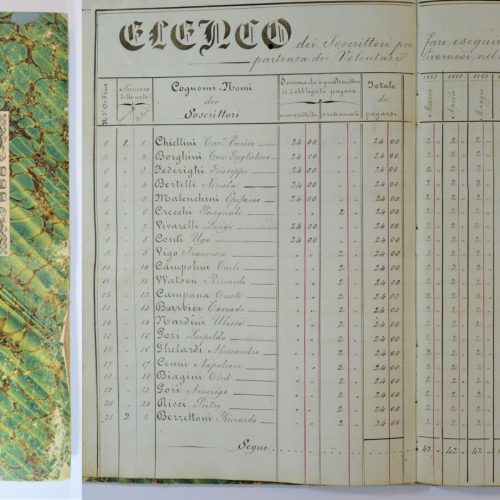 ELENCO dei Soscrittori per fare eseguir
partenza dei Volontari Livornesi nel
N. d'Ordine Numero Cognomi e Nomi dei Soscrittori Totale da pagarsi Marzo Aprile Maggio
1 1 1 Chiellini Cav. Enrico 24 00 24 00 2 2 2
2 2 Borghini Cav. Guglielmo 24 00 24 00 2 2 2
3 3 Federighi Giuseppe 24 00 24 00 2 2 2
4 4 Bertelli Niccola 24 00 24 00 2 2 2
5 5 Malenchini Epifanio 24 00 24 00 2 2 2
6 6 Crecchi Pasquale 2 24 00 2 2 2
7 7 Vivarelli Luigi 24 00 24 00 2 2 2
8 8 Conti Ugo 24 00 24 00 2 2 2
9 9 Vigo Francesco 2 24 00 2 2 2
10 10 Campolmi Carlo 2 24 00 2 2 2
11 11 Watson Riccardo 2 24 00 2 2 2
12 12 Campana Oreste 2 24 00 2 2 2
13 13 Barbier Corrado 2 24 00 2 2 2
14 14 Nardini Ulisse 2 24 00 2 2 2
15 15 Gori Leopoldo 2 24 00 2 2 2
16 16 Ghelardi Alessandro 2 24 00 2 2 2
17 17 Cenni Napoleone 2 24 00 2 2 2
18 18 Biagini Obed 2 24 00 2 2 2
19 19 Gori Amerigo 2 24 00 2 2 2
20 20 Ricci Pietro 2 24 00 2 2 2
21 2 1 Berrettoni Riccardo 2 24 00 2 2 2
Segue 42 42 42